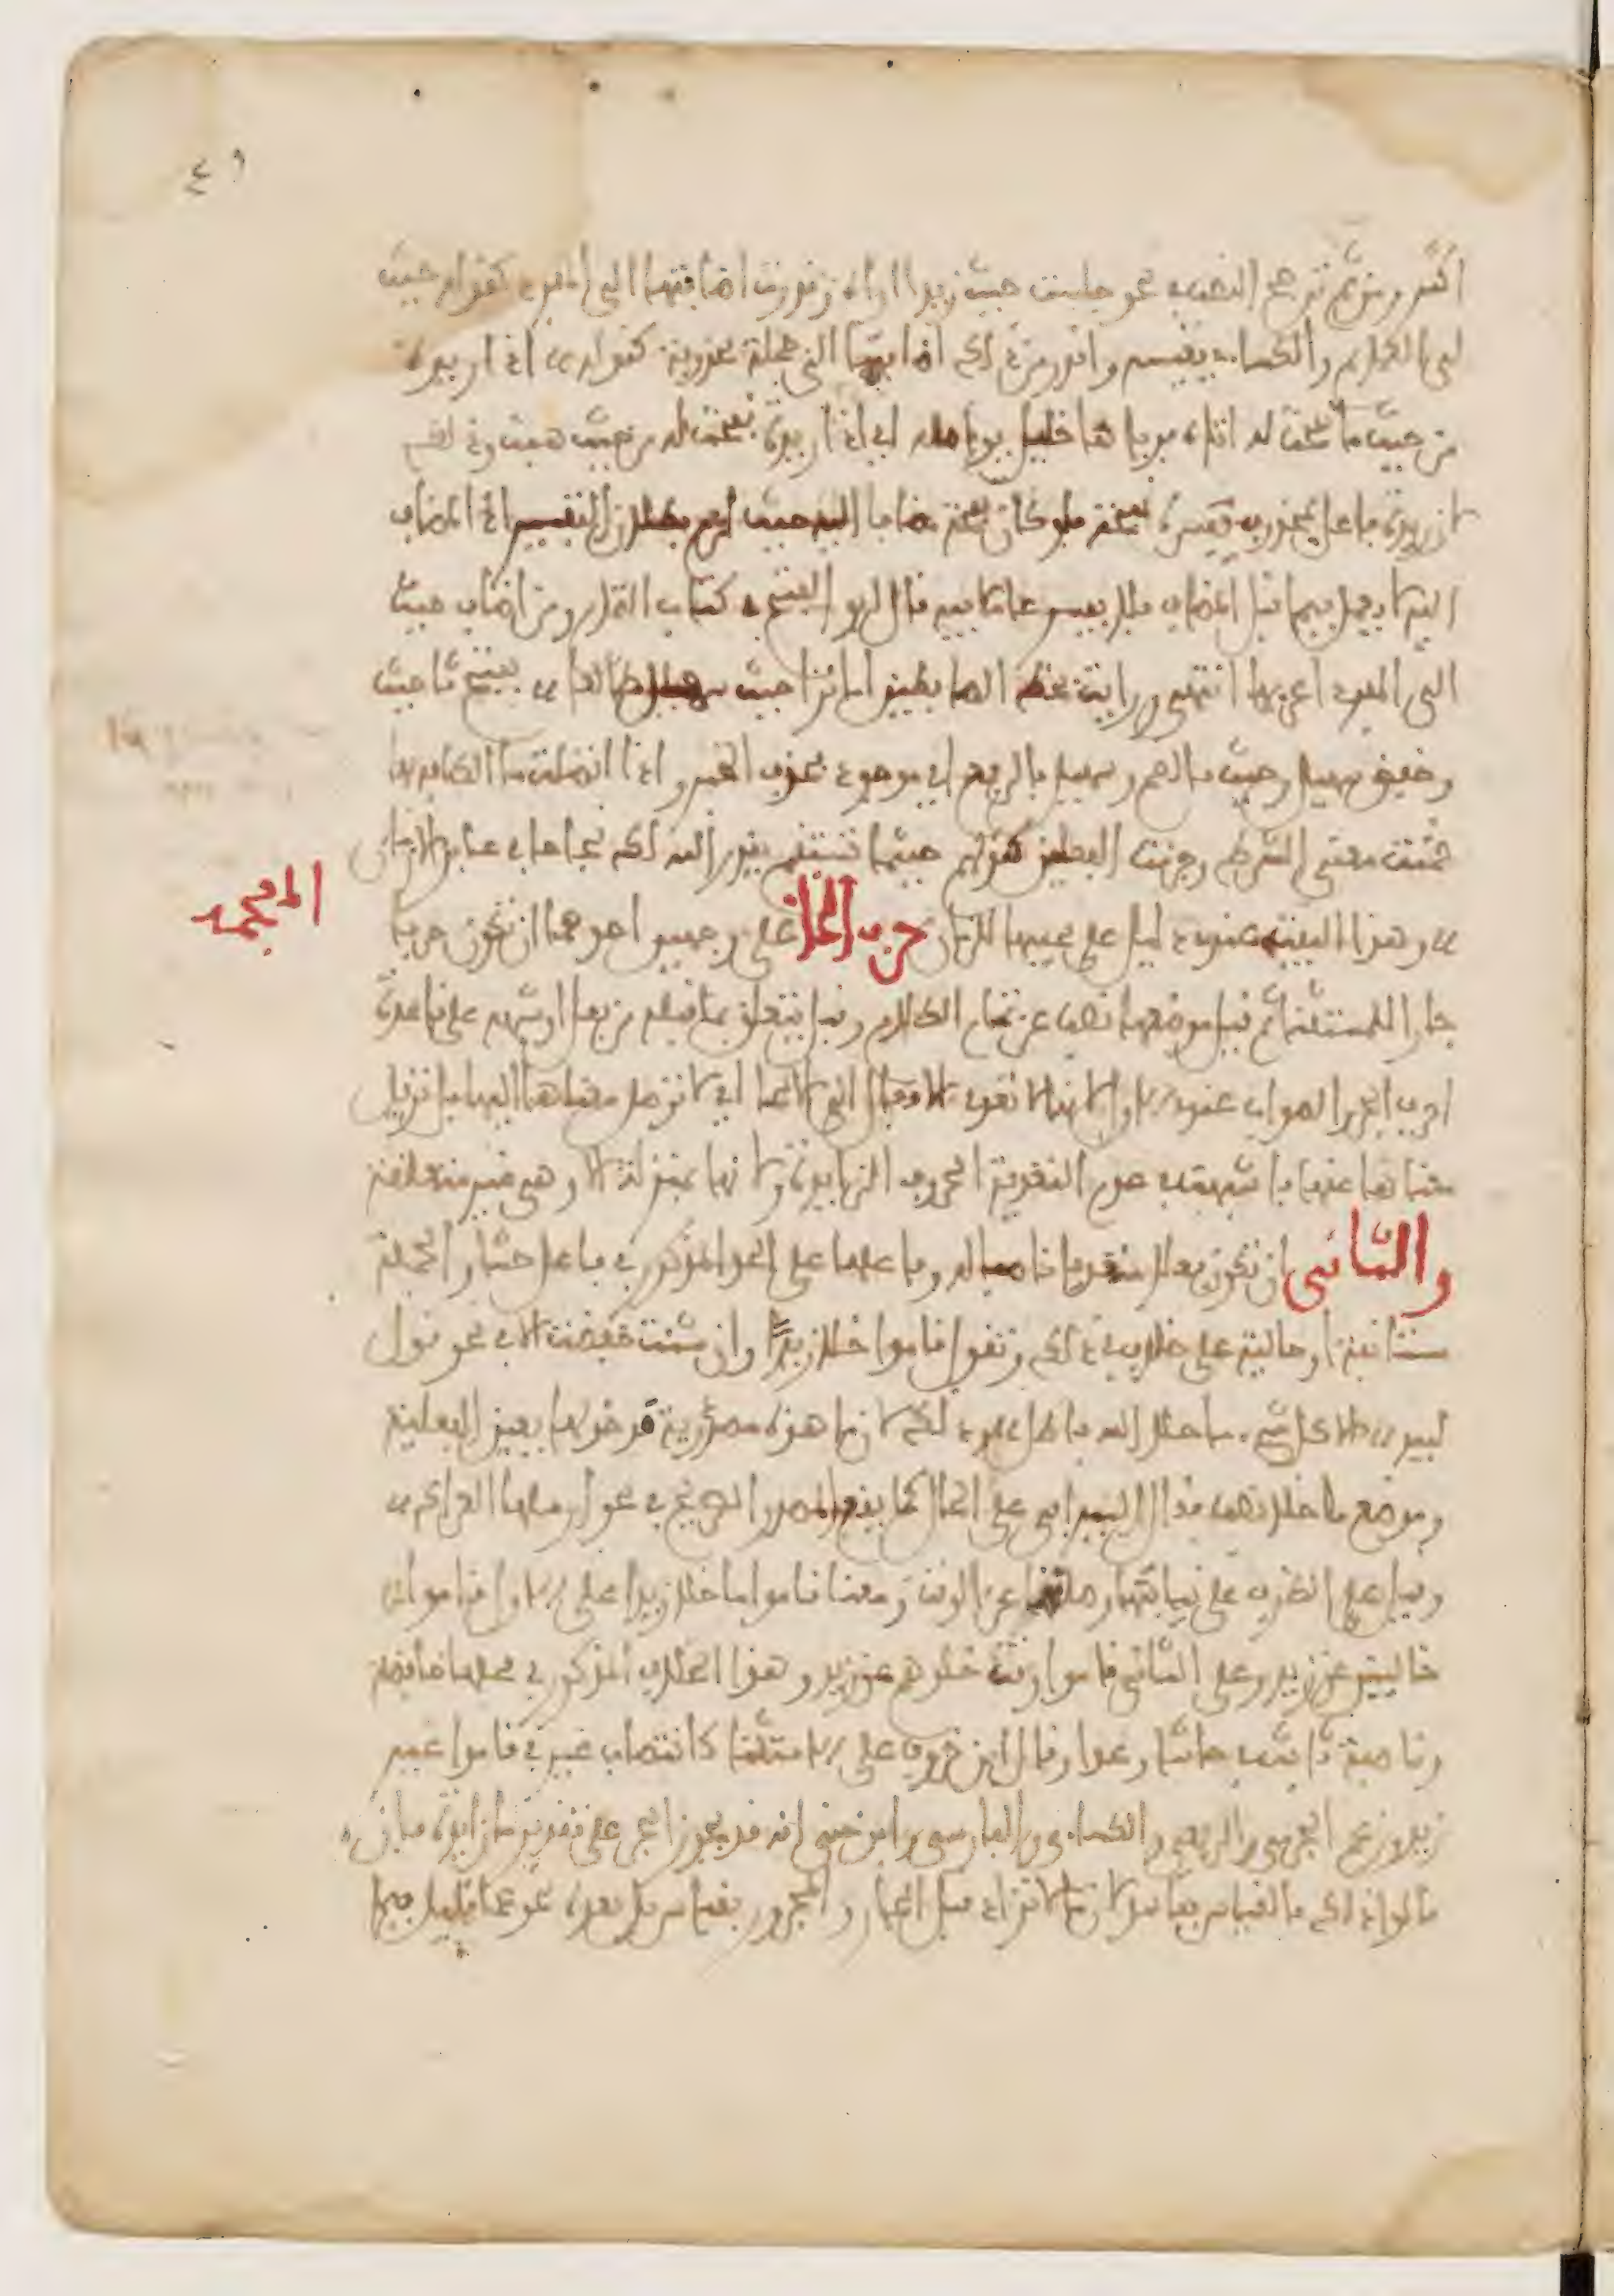 ٤٩
أكثر ومن ثم ترجح النصب في نحو جلست حيث زيدا أراه وندرت اضافتها الى المفرد كقوله حيث
لي العمائم والكسائي يقيسه واندر من ذلك اضافتها الى جملة محذوفة كقوله اذا ريدة
من حيث ما نفحت له اتاه برياها خليل يواصله اي اذا ريدة نفحت له من حيث هبت وذلك
لان ريدة فاعل بمحذوف يفسره نفحت فلو كان نفحت مضافا اليه حيث لزم بطلان التفسير اذ المضاف
اليه لا يعمل فيما قبل المضاف فلا يفسر عاملا فيه قال ابو الفتح في كتاب التمام ومن اضاف حيث
الى المفرد اعربها انتهى ورايت بخط الضابطين اما ترى حيث سهيل طالعا بفتح ثا حيث
وخفض سهيل وحيث بالضم وسهيل بالرفع اي موجود بحذف الخبر واذا اتصلت ما الكافة بها
ضمنت معنى الشرط وجزمت الفعلين كقوله حيثما تستقم يقدر لك الله نجاحا في غابر الازمان
وهذا البيت عندي دليل على مجيئها للزمان حرف الخا على وجهين احدهما ان تكون حرفا
المعجمة
جارا للمستثنى ثم قيل موضعها نصب عن تمام الكلام وقيل تتعلق بما قبلها من فعل او شبهه على قاعدة
احرف الجر والصواب عندي الاول لانها لا تعدي الافعال الى الاسما اي لا توصل معناها اليها بل تزيل
معناها عنها فاشبهت في عدم التعدية الحروف الزايدة ولانها بمنزلة الا وهي غير متعلقة
والثاني ان تكون فعلا متعديا ناصبا له وفاعلها على الحد المذكور في فاعل حاشا والجملة
مستانفة او حالية على خلاف في ذلك وتقول قاموا خلا زيدا وان شئت خفضت الا في نحو قول
لبيد الا كل شيء ما خلا الله باطل وذلك لان ما هذه مصدرية فدخولها يعين الفعلية
وموضع ما خلا نصب فقال السيرافي على الحال كما يقع المصدر الصريح في نحو ارسلها العراك
وقيل على الظرف على نيابتها وصلتها عن الوقت فمعنى قاموا ما خلا زيدا على الاول قاموا
خالين عن زيد وعلى الثاني قاموا وقت خلوهم عن زيد وهذا الخلاف المذكور في محلها خافضة
وناصبة ثابت في حاشا وعدا وقال ابن خروف على الاستثنا كانتصاب غير في قاموا غير
زيد وزعم الجرمي والربعي والكسائي والفارسي وابن جني انه قد يجوز الجر على تقدير ما زايدة فان
قالوا ذلك بالقياس ففاسد لان ما لا تزاد قبل الجار والمجرور بل بعده نحو عما قليل فبما